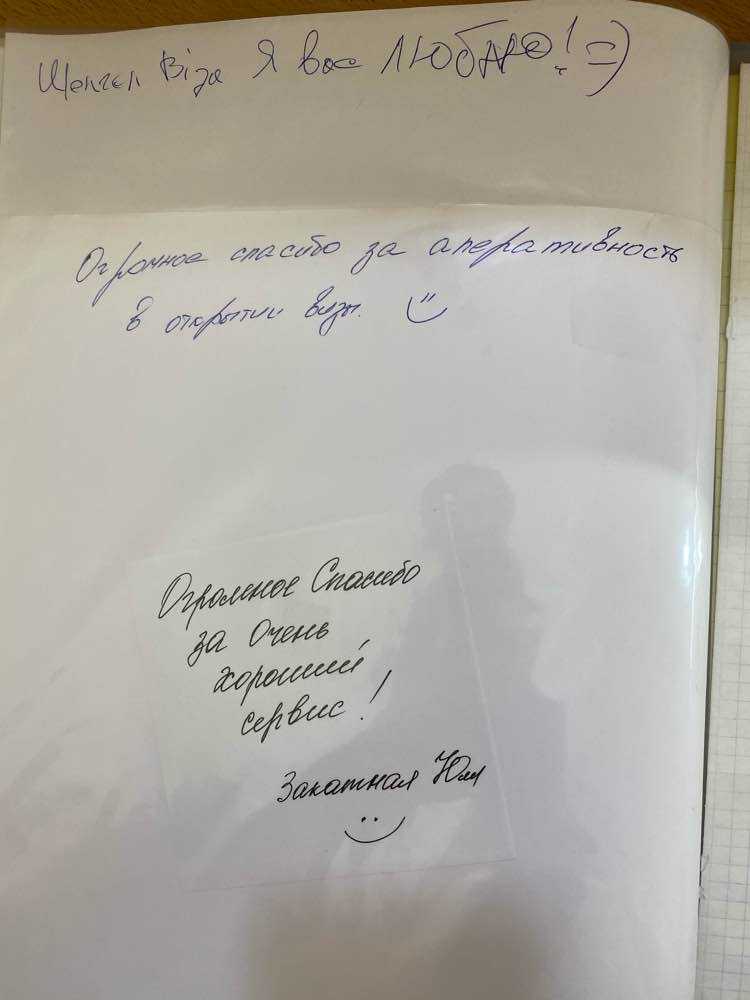 Шенген Віза Я вас ЛЮБЛЮ! =)
Огромное спасибо за аперативность
в открытии визы.
Огромное Спасибо
за Очень
хороший
сервис!
Закатная Юля